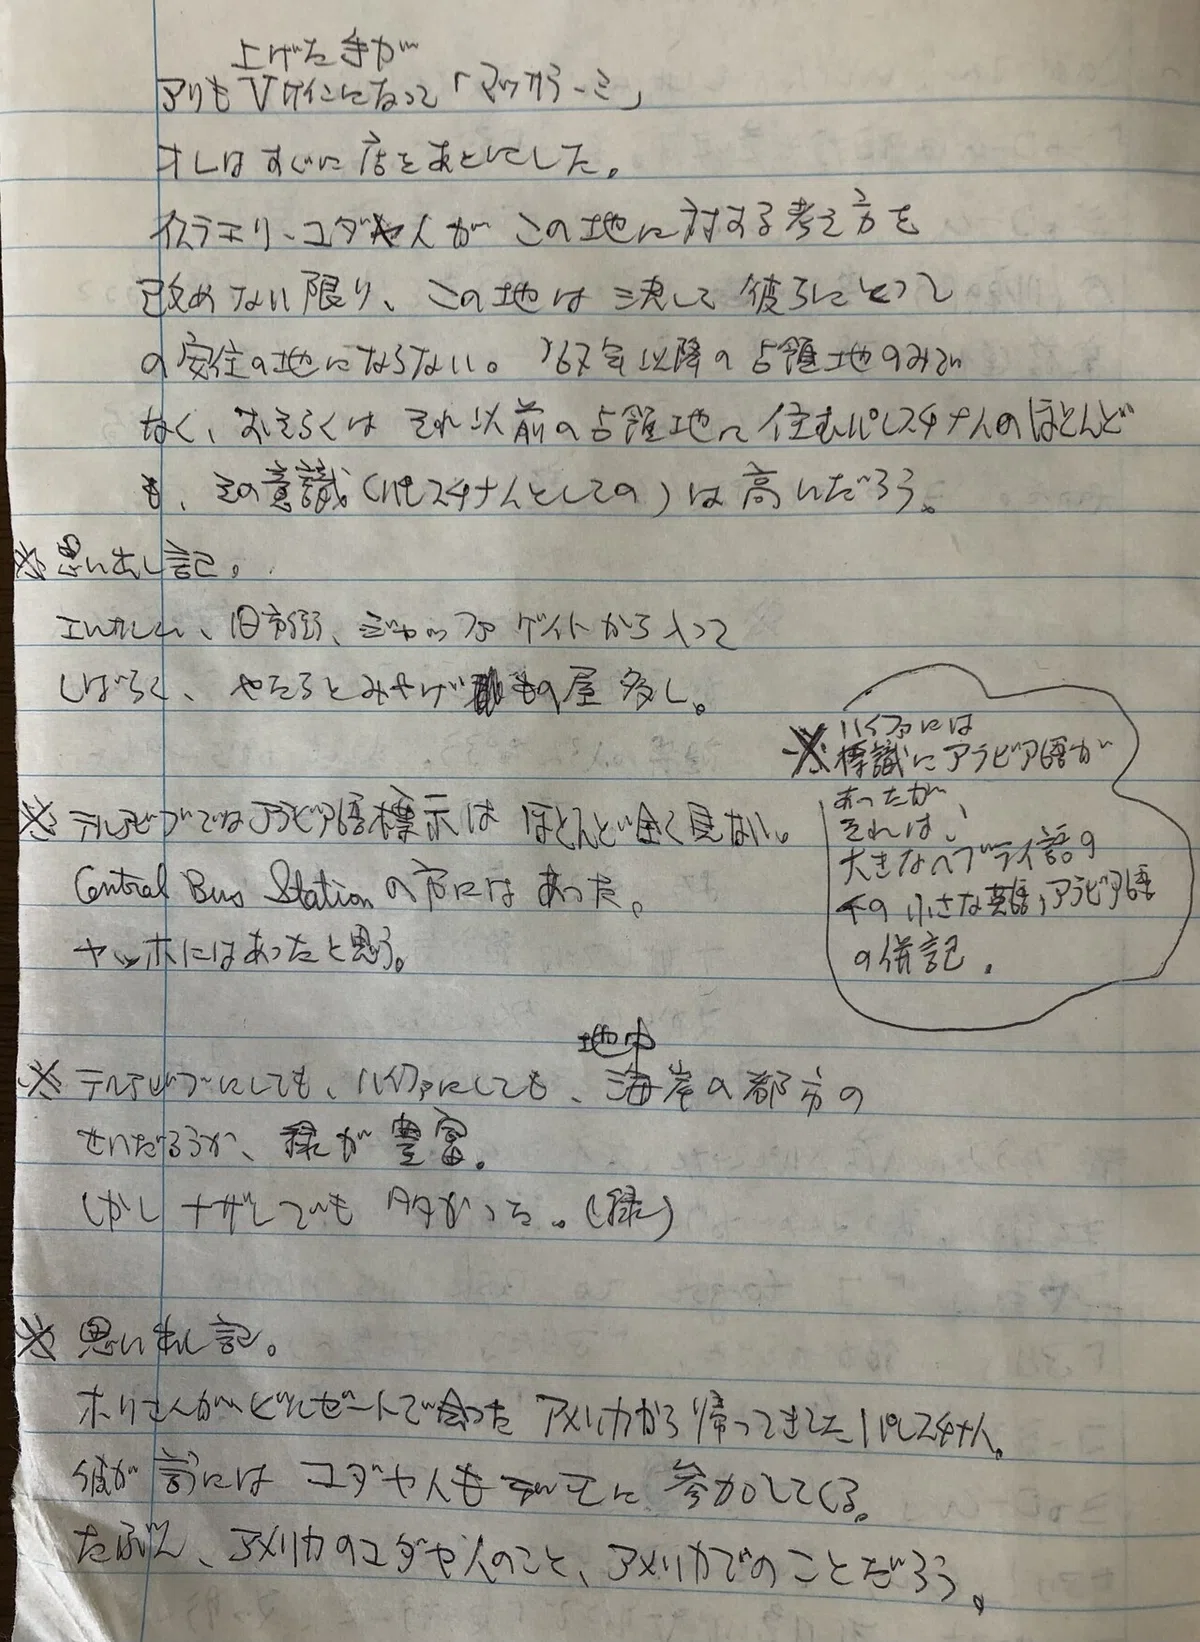 上げた手が
アリも Vサインになって「マッサラーミ」
オレはすぐに店をあとにした。
イスラエリ・ユダヤ人が この地に対する考え方を
改めない限り、この地は 決して 彼らにとって
の安住の地にならない。'67年以降の占領地のみで
なく、おそらくは それ以前の占領地に住むパレスチナ人のほとんど
も、その意識（パレスチナ人としての）は高いだろう。
※思い出し記。
エルサレム、旧市街、ジャッファ ゲイトから入って
しばらく、やたらとみやげもの屋多し。
※ハイファには
標識にアラビア語が
あったが、
それは、
大きなヘブライ語の
下の 小さな英語，アラビア語
の併記．
※ テルアビブではアラビア語標示は ほとんど全く見ない。
Central Bus Station の方にはあった。
ヤッホにはあったと思う。
地中
※ テルアビブにしても、ハイファにしても、海岸の都市の
せいだろうか、緑が豊富。
しかしナザレでも 多かった。（緑）
※ 思い出し記。
ホリさんがビルゼートで会った アメリカから帰ってきてたパレスチナ人。
彼が言うには ユダヤ人もデモに参加してくる。
たぶん、アメリカのユダヤ人のこと、アメリカでのことだろう。